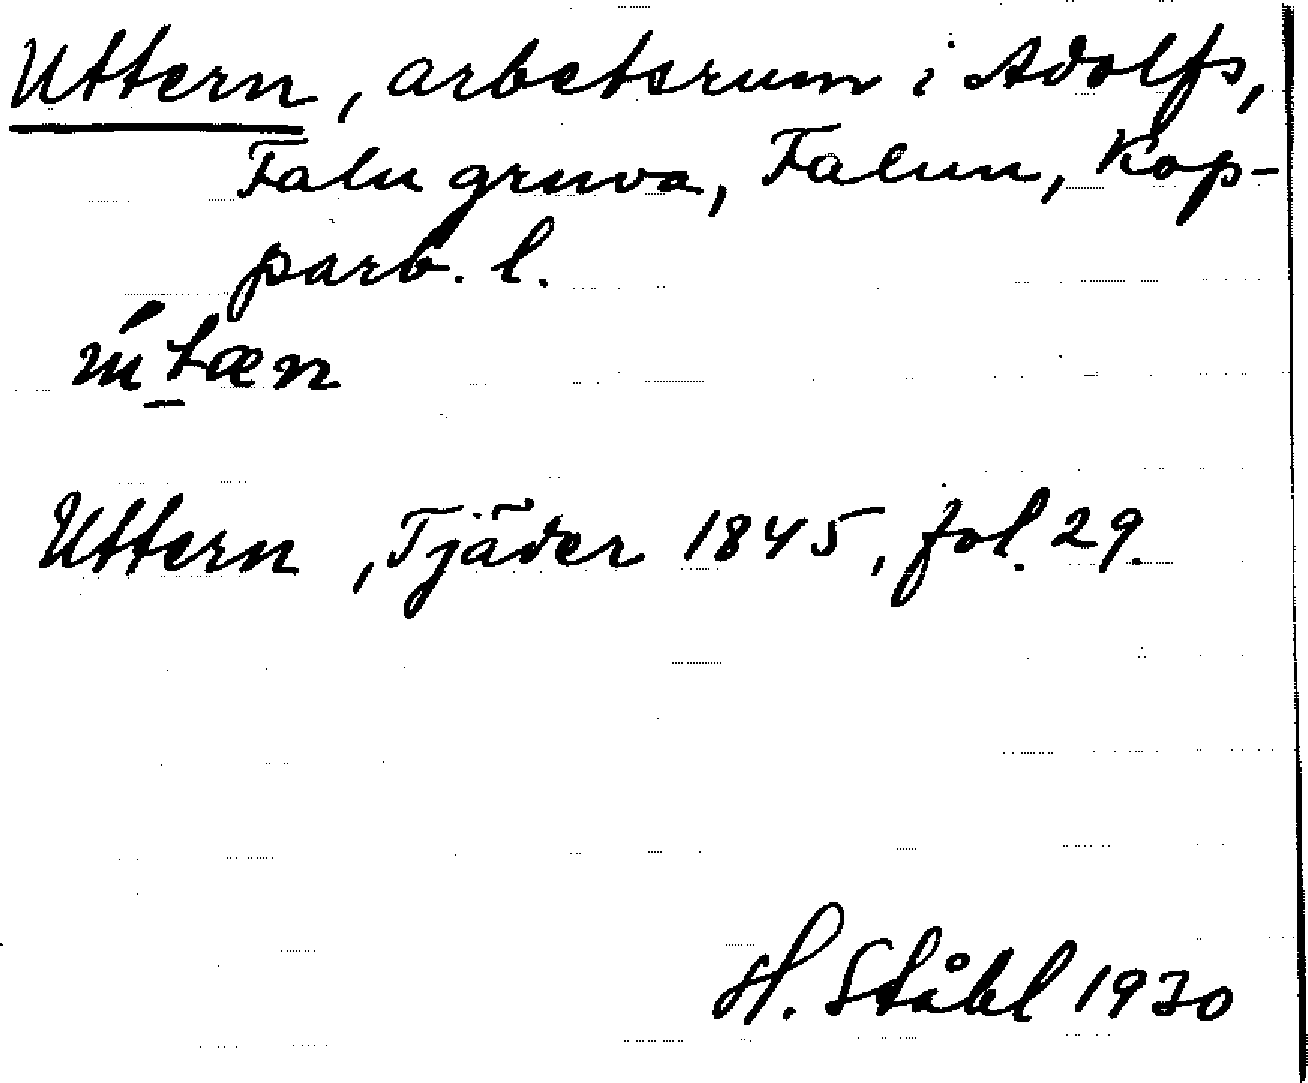 Uttern, arbetsrum i Adolfs,
Falu gruva, Falun, Kop-
parb. l.
Uttern, Tjäder 1845, fol. 29.
H. Ståhl 1930